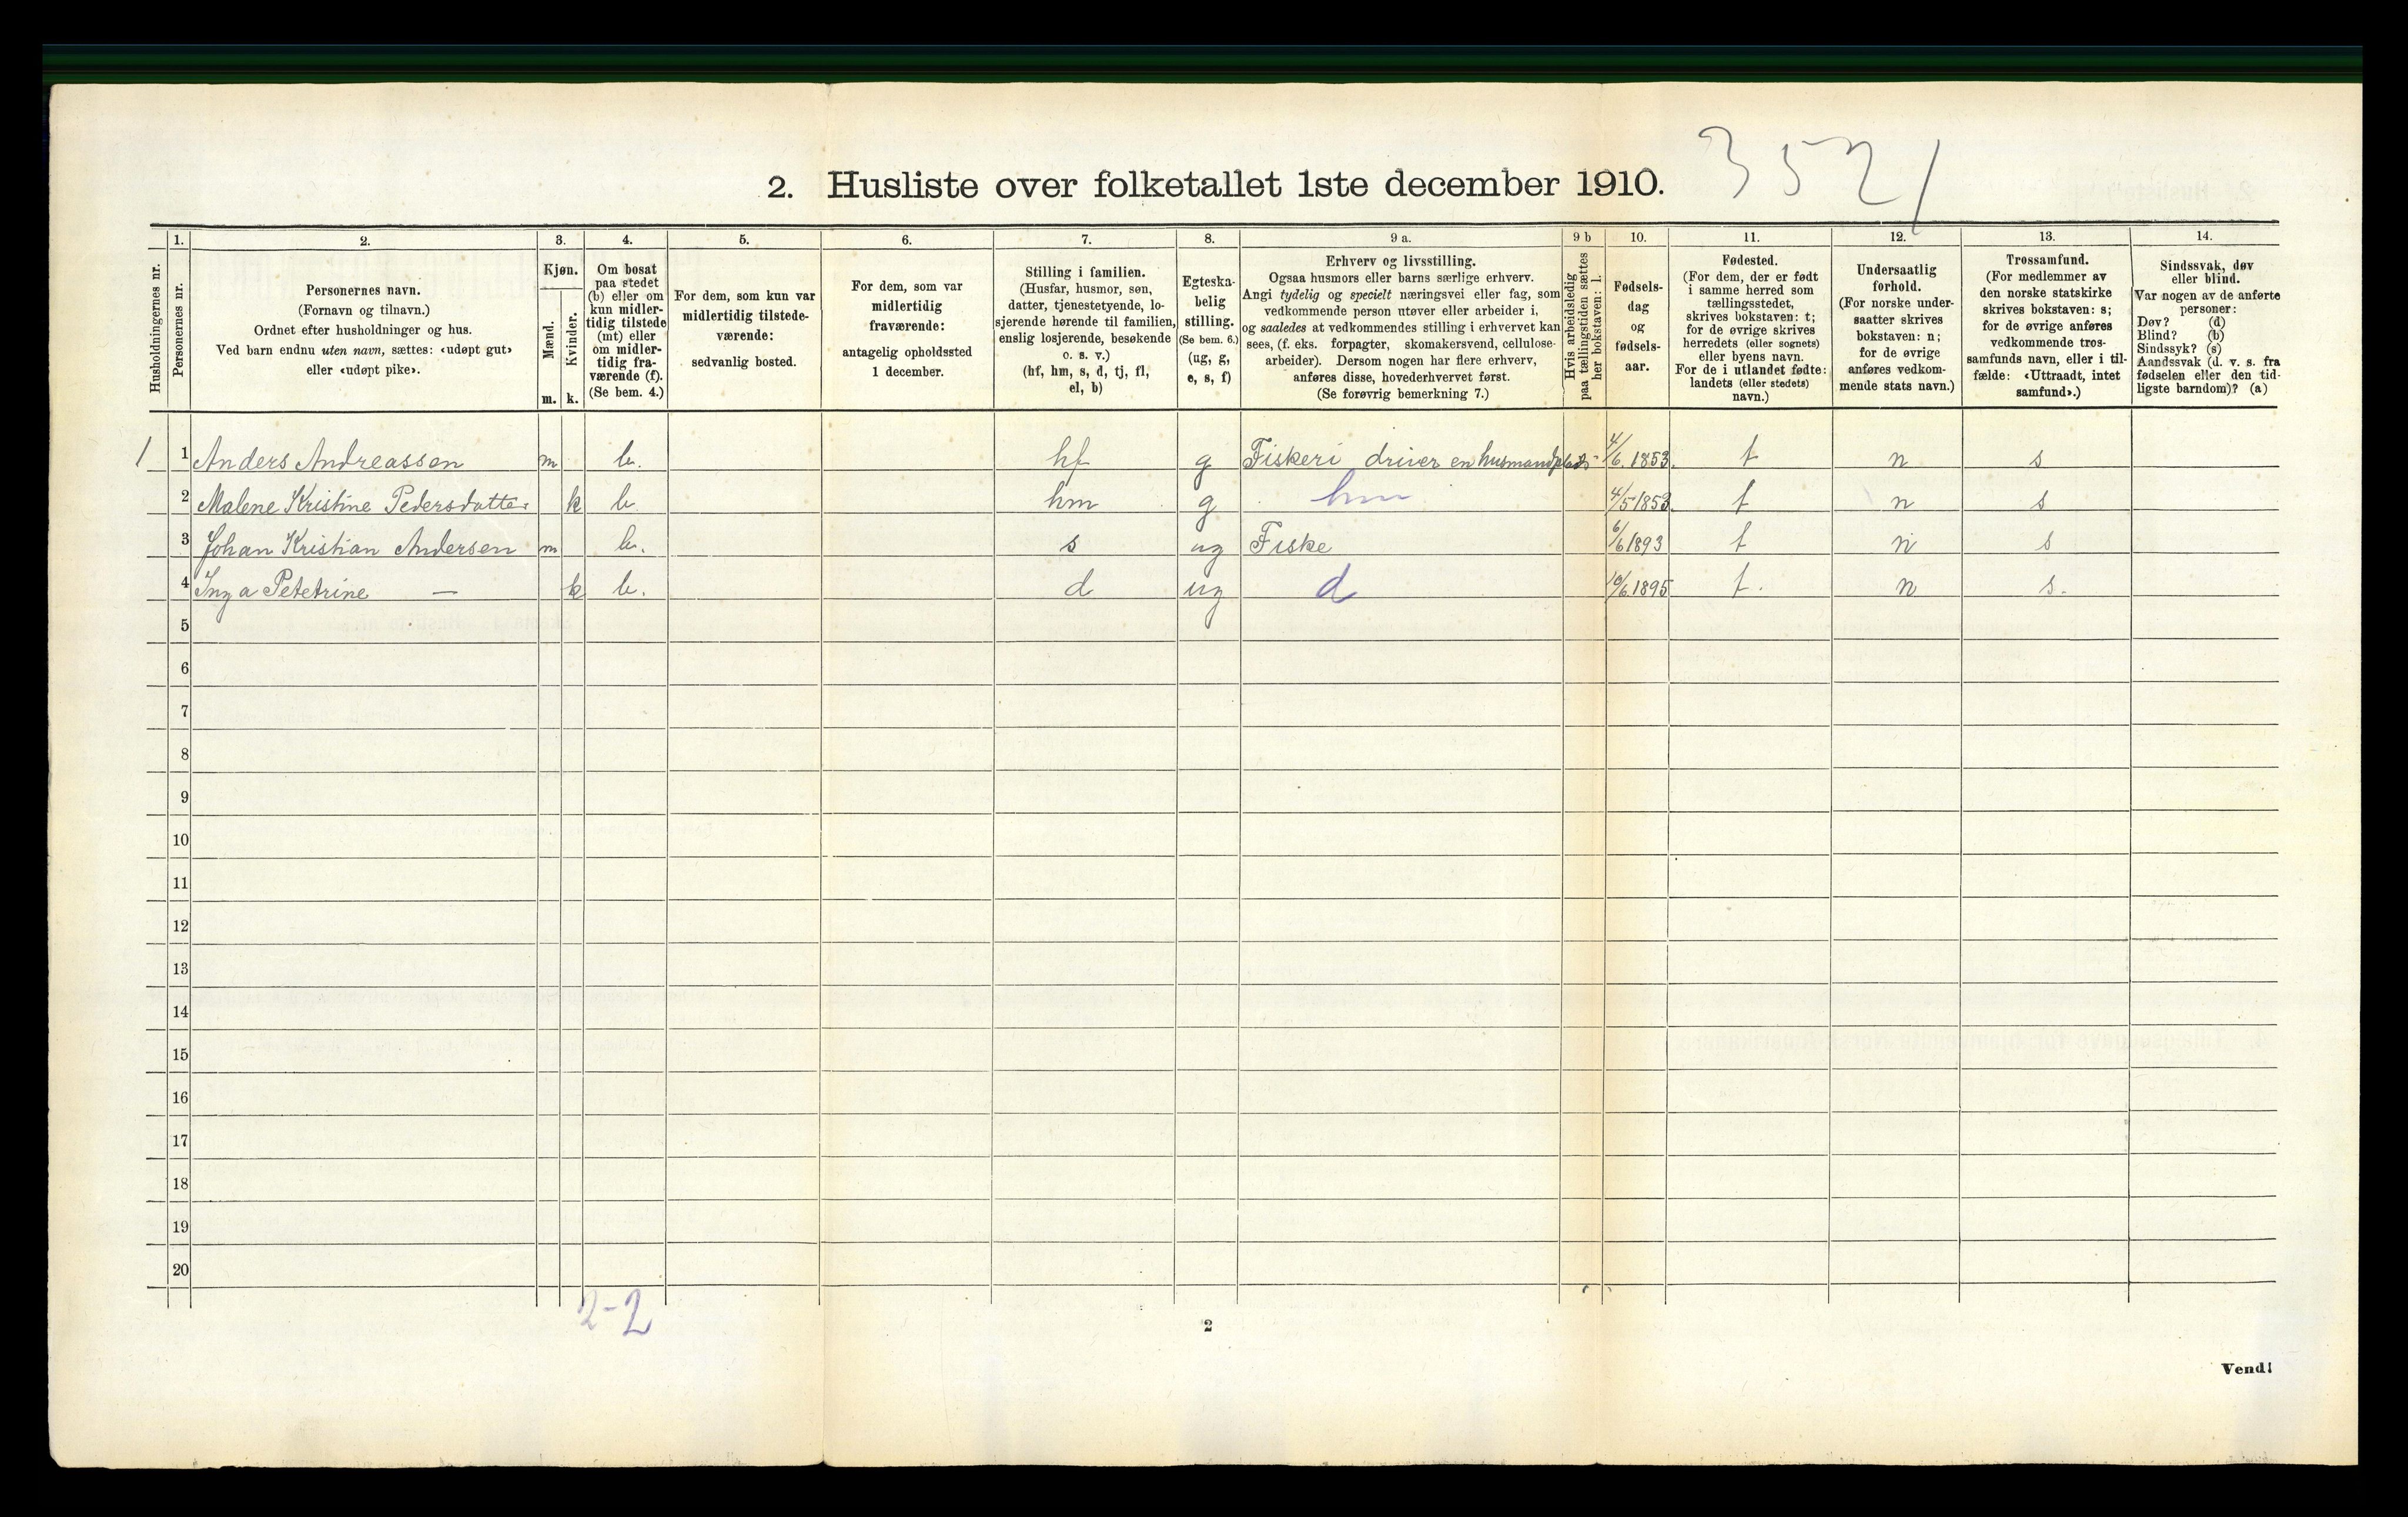 3521
2. Husliste over folketallet 1ste december 1910.
Husholdningernes nr.
1. Personernes nr.
2. Personernes navn. (Fornavn og tilnavn.) Ordnet efter husholdninger og hus. Ved barn endnu uten navn, sættes: «udøpt gut» eller «udøpt pike».
3. Kjøn. Mænd. m. Kvinder. k.
4. Om bosat paa stedet (b) eller om kun midlertidig tilstede (mt) eller om midlertidig fraværende (f). (Se bem. 4.)
5. For dem, som kun var midlertidig tilstedeværende: sedvanlig bosted.
6. For dem, som var midlertidig fraværende: antagelig opholdssted 1 december.
7. Stilling i familien. (Husfar, husmor, søn, datter, tjenestetyende, losjerende hørende til familien, enslig losjerende, besøkende o. s. v.) (hf, hm, s, d, tj, fl, el, b)
8. Egteskabelig stilling. (Se bem. 6.) (ug, g, e, s, f)
9 a. Erhverv og livsstilling. Ogsaa husmors eller barns særlige erhverv. Angi tydelig og specielt næringsvei eller fag, som vedkommende person utøver eller arbeider i, og saaledes at vedkommendes stilling i erhvervet kan sees, (f. eks. forpagter, skomakersvend, cellulosearbeider). Dersom nogen har flere erhverv, anføres disse, hovederhvervet først. (Se forøvrig bemerkning 7.)
9 b Hvis arbeidsledig paa tællingstiden sættes her bokstaven: l.
10. Fødselsdag og fødselsaar.
11. Fødested. (For dem, der er født i samme herred som tællingsstedet, skrives bokstaven: t; for de øvrige skrives herredets (eller sognets) eller byens navn. For de i utlandet fødte: landets (eller stedets) navn.)
12. Undersaatlig forhold. (For norske undersaatter skrives bokstaven: n; for de øvrige anføres vedkommende stats navn.)
13. Trossamfund. (For medlemmer av den norske statskirke skrives bokstaven: s; for de øvrige anføres vedkommende trossamfunds navn, eller i tilfælde: «Uttraadt, intet samfund».)
14. Sindssvak, døv eller blind. Var nogen av de anførte personer: Døv? (d) Blind? (b) Sindssyk? (s) Aandssvak (d. v. s. fra fødselen eller den tidligste barndom)? (a)
1 1 Anders Andreassen m b. hf g Fiskeri driver en husmandplads 4/6. 1853. t n s
2 Malene Kristine Pedersdatter k b hm g hm 4/5 1853. t n s
3 Johan Kristian Andersen m b. s ug Fiske 6/6 1893 t n s
4 Inga Petetrine — k b. d ug d 10/6. 1895 t. n s.
5
6
7
8
9
10
11
12
13
14
15
16
17
18
19
20
2-2
2
Vend!